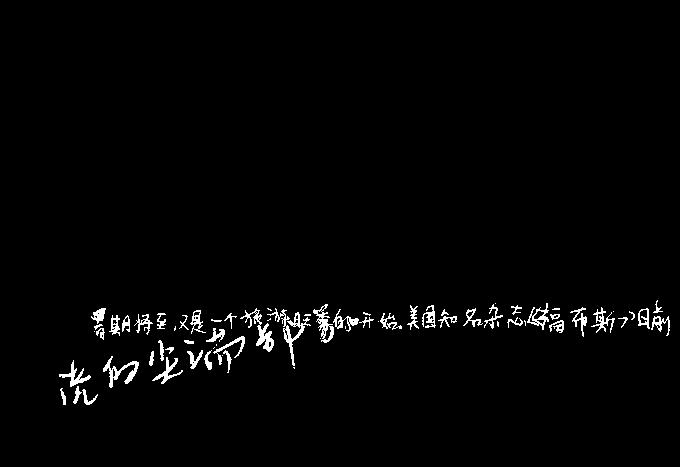 暑期将至,又是一个旅游旺季的开始。美国知名杂志《福布斯》日前
流的尖端部